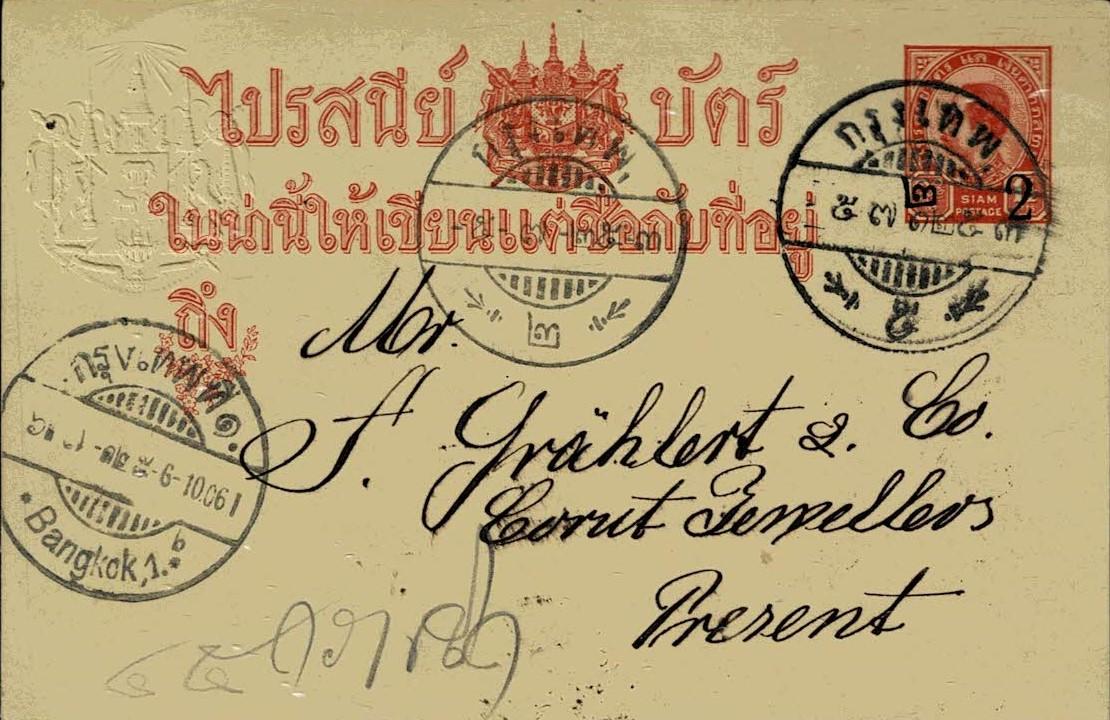 ไปรสนีย์ บัตร์
SIAM
POSTAGE
2
ในน่านี้ให้เขียนแต่ชื่อกับที่อยู่
ถึง
กรุงเทพ
๒
กรุงเทพ
๒
กรุงเทพ ๑
9-10.06
Bangkok, 1.
Mr.
F. Grählert & Co.
Corut Jewellers
Present